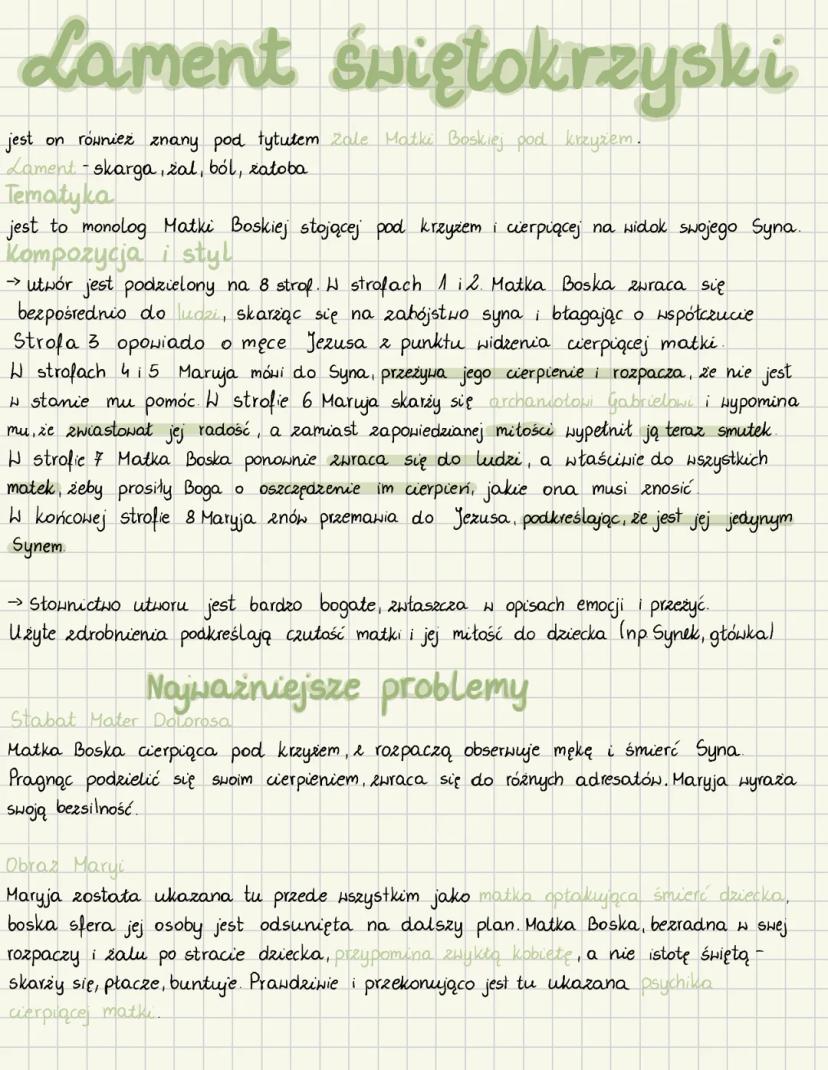 Lament świętokrzyski
jest on również znany pod tytułem Żale Matki Boskiej pod krzyżem.
Lament - skarga, żal, ból, żałoba
Tematyka
jest to monolog Matki Boskiej stojącej pod krzyżem i cierpiącej na widok swojego Syna.
Kompozycja i styl
→ utwór jest podzielony na 8 strof. W strofach 1 i 2. Matka Boska zwraca się
bezpośrednio do ludzi, skarżąc się na zabójstwo syna i błagając o współczucie
Strofa 3 opowiado o męce Jezusa z punktu widzenia cierpiącej matki.
W strofach 4 i 5 Maryja mówi do Syna, przeżywa jego cierpienie i rozpacza, że nie jest
w stanie mu pomóc. W strofie 6 Maryja skarży się archaniołowi Gabrielowi i wypomina
mu, że zwiastował jej radość, a zamiast zapowiedzianej miłości wypełnił ją teraz smutek.
W strofie 7 Matka Boska ponownie zwraca się do ludzi, a właściwie do wszystkich
matek, żeby prosiły Boga o oszczędzenie im cierpień, jakie ona musi znosić.
W końcowej strofie 8 Maryja znów przemawia do Jezusa, podkreślając, że jest jej jedynym
Synem.
→ Słownictwo utworu jest bardzo bogate, zwłaszcza w opisach emocji i przeżyć.
Użyte zdrobnienia podkreślają czułość matki i jej miłość do dziecka (np. Synek, główka)
Najważniejsze problemy
Stabat Mater Dolorosa
Matka Boska cierpiąca pod krzyżem, z rozpaczą obserwuje mękę i śmierć Syna.
Pragnąc podzielić się swoim cierpieniem, zwraca się do różnych adresatów. Maryja wyraża
swoją bezsilność.
Obraz Maryi
Maryja została ukazana tu przede wszystkim jako matka opłakująca śmierć dziecka,
boska sfera jej osoby jest odsunięta na dalszy plan. Matka Boska, bezradna w swej
rozpaczy i żalu po stracie dziecka, przypomina zwykłą kobietę, a nie istotę świętą -
skarży się, płacze, buntuje. Prawdziwie i przekonująco jest tu ukazana psychika
cierpiącej matki.